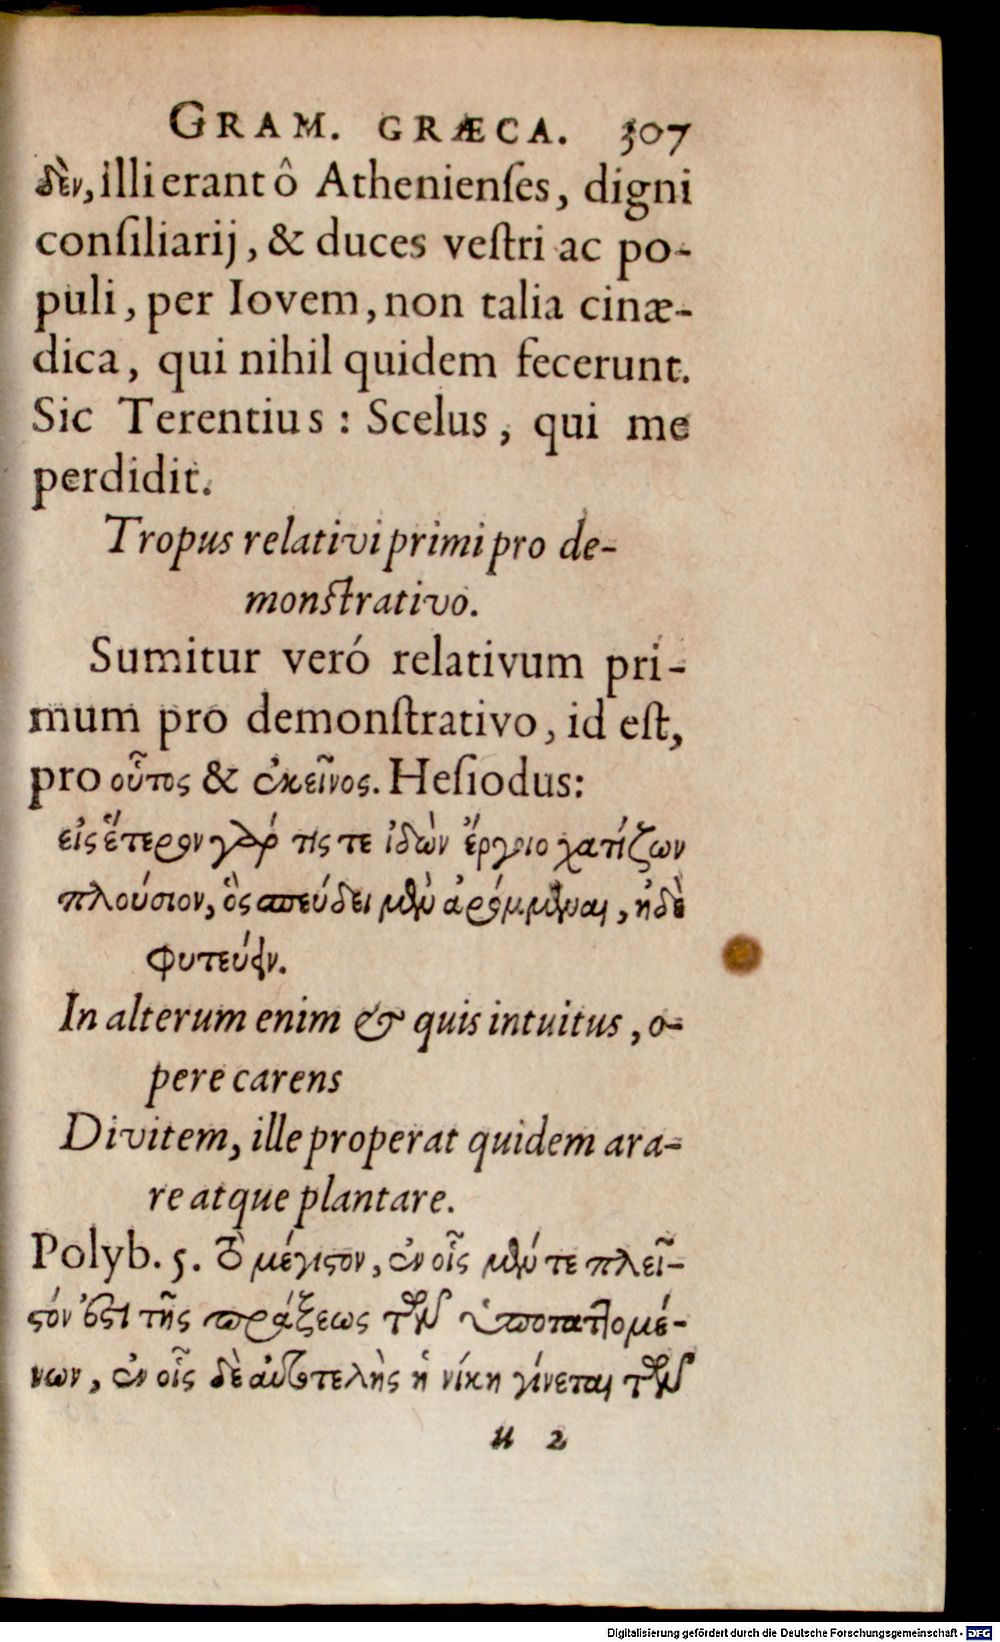 GRAM. GRÆCA. 307
δὲν, illi erant ô Athenienſes, digni
conſiliarij, & duces veſtri ac po-
puli, per Iovem, non talia cinæ-
dica, qui nihil quidem fecerunt.
Sic Terentius: Scelus, qui me
perdidit.
Tropus relativi primi pro de-
monſtrativo.
Sumitur veró relativum pri-
mum pro demonſtrativo, id eſt,
pro οὗτος & ἐκεῖνος. Heſiodus:
εἰς ἕτερον γάρ τίς τε ἰδὼν ἔργοιο χατίζων
πλούσιον, ὃς σπεύδει μὲν ἀρόμμεναι, ἠδὲ
φυτεύειν.
In alterum enim & quis intuitus, o-
pere carens
Divitem, ille properat quidem ara-
re atque plantare.
Polyb. 5. Τὸ μέγιστον, ἐν οἷς μέν τε πλεῖ-
στόν ἐστι τῆς πράξεως τῶν ὑποταττομέ-
νων, ἐν οἷς δὲ αὐτοτελὴς ἡ νίκη γίνεται τῶν
u 2
Digitalisierung gefördert durch die Deutsche Forschungsgemeinschaft - DFG